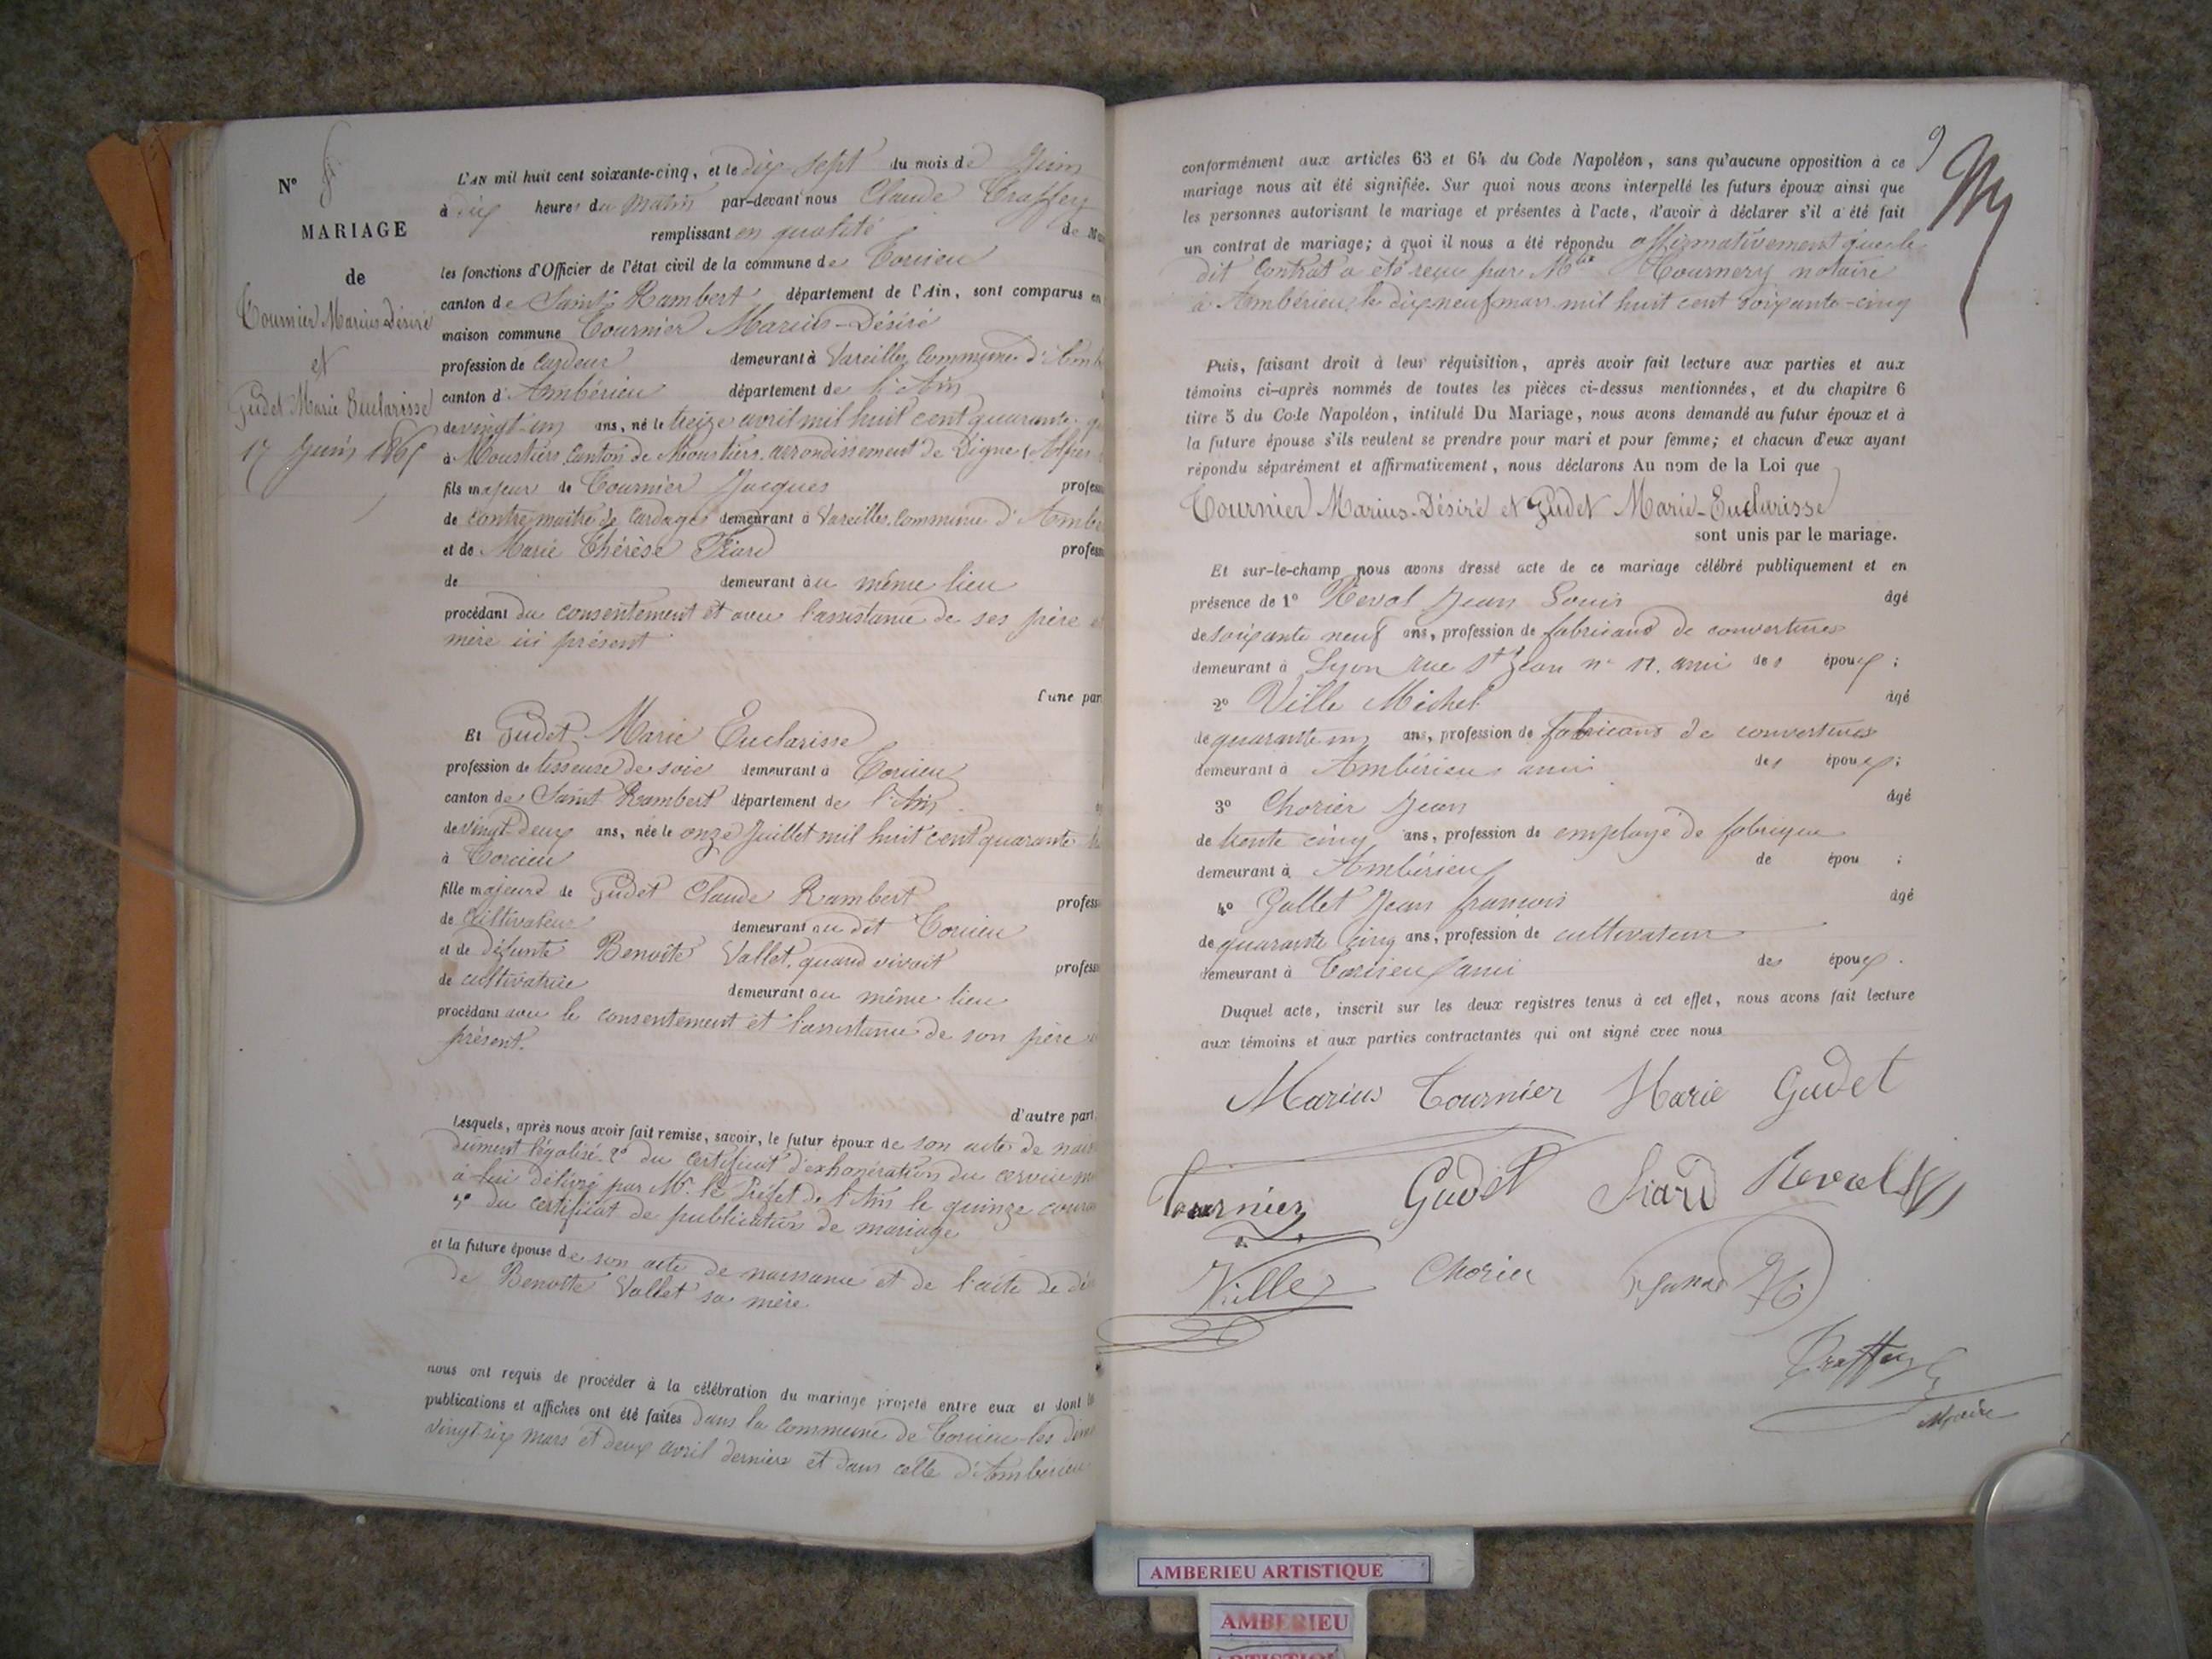 N°
MARIAGE
de
Tournier Marius Désiré
et
Gudet Marie Euclarisse
17 Juin 1865
L'AN mil huit cent soixante-cinq, et le dix sept du mois de Juin
à dix heures du matin par-devant nous Claude Traffey
remplissant en qualité de
les fonctions d'Officier de l'état civil de la commune de Torcieu
canton de Saint Rambert département de l'Ain, sont comparus en
maison commune Tournier Marius-Désiré
profession de cardeur demeurant à Vareilles Commune d'Amb
canton d'Ambérieu département de l'Ain
de vingt-un ans, né le treize avril mil huit cent quarante
à Moustiers, Canton de Moustiers, arrondissement de Digne (Alpes
fils majeur de Tournier Jacques profess
de contre maitre de Cardage demeurant à Vareilles, Commune d'Ambé
et de Marie Thérèse profess
de demeurant au même lieu
procédant du consentement et avec l'assistance de ses père et
mère ici présent
l'une par
Et Gudet Marie Euclarisse
profession de tisseuse de soie demeurant à Torcieu
canton de Saint Rambert département de l'Ain
de vingt-deux ans, née le onze Juillet mil huit cent quarante
à Torcieu
fille majeure de Gudet Claude Rambert profess
de Cultivateur demeurant au dit Torcieu
et de défunte Benoîte Vallet, quand vivait profess
de cultivatrice demeurant au même lieu
procédant avec le consentement et l'assistance de son père
présent.
d'autre part,
Lesquels, après nous avoir fait remise, savoir, le futur époux de son acte de nais
dûment légalisé. 2° du certificat d'exhonération du service
à lui délivré par Mr. le Préfet de l'Ain le quinze coura
du certificat de publication de mariage
et la future épouse de son acte de naissance et de l'acte de dé
de Benoîte Vallet sa mère
nous ont requis de procéder à la célébration du mariage projeté entre eux et dont
publications et affiches ont été faites dans la commune de Torcieu les dim
vingt-six mars et deux avril derniers et dans celle d'Ambérieu
9
conformément aux articles 63 et 64 du Code Napoléon, sans qu'aucune opposition à ce
mariage nous ait été signifiée. Sur quoi nous avons interpellé les futurs époux ainsi que
les personnes autorisant le mariage et présentes à l'acte, d'avoir à déclarer s'il a été fait
un contrat de mariage; à quoi il nous a été répondu affirmativement que le
dit Contrat a été reçu par Tournery notaire
à Ambérieu, le dix neuf mars mil huit cent soixante-cinq
Puis, faisant droit à leur réquisition, après avoir fait lecture aux parties et aux
témoins ci-après nommés de toutes les pièces ci-dessus mentionnées, et du chapitre 6
titre 5 du Code Napoléon, intitulé Du Mariage, nous avons demandé au futur époux et à
la future épouse s'ils veulent se prendre pour mari et pour femme; et chacun d'eux ayant
répondu séparément et affirmativement, nous déclarons Au nom de la Loi que
Tournier Marius-Désiré et Gudet Marie-Euclarisse
sont unis par le mariage.
Et sur-le-champ nous avons dressé acte de ce mariage célébré publiquement et en
présence de 1° Reval Jean Louis âgé
de soixante neuf ans, profession de fabricant de couvertures
demeurant à Lyon rue St Jean n° ami des époux;
2° Ville Michel âgé
de quarante un ans, profession de fabricant de couvertures
demeurant à Ambérieu ami des époux;
3° Chorier Jean âgé
de trente cinq ans, profession de employé de fabrique
demeurant à Ambérieu de épou ;
4° Gallet Jean françois âgé
de quarante cinq ans, profession de cultivateur
demeurant à Torcieu ami des époux.
Duquel acte, inscrit sur les deux registres tenus à cet effet, nous avons fait lecture
aux témoins et aux parties contractantes qui ont signé avec nous
Marius Tournier Marie Gudet
Tournier Gudet Reval
Ville Chorier
Traffey
Maire
AMBERIEU ARTISTIQUE
AMBERIEU
ARTISTIQUE